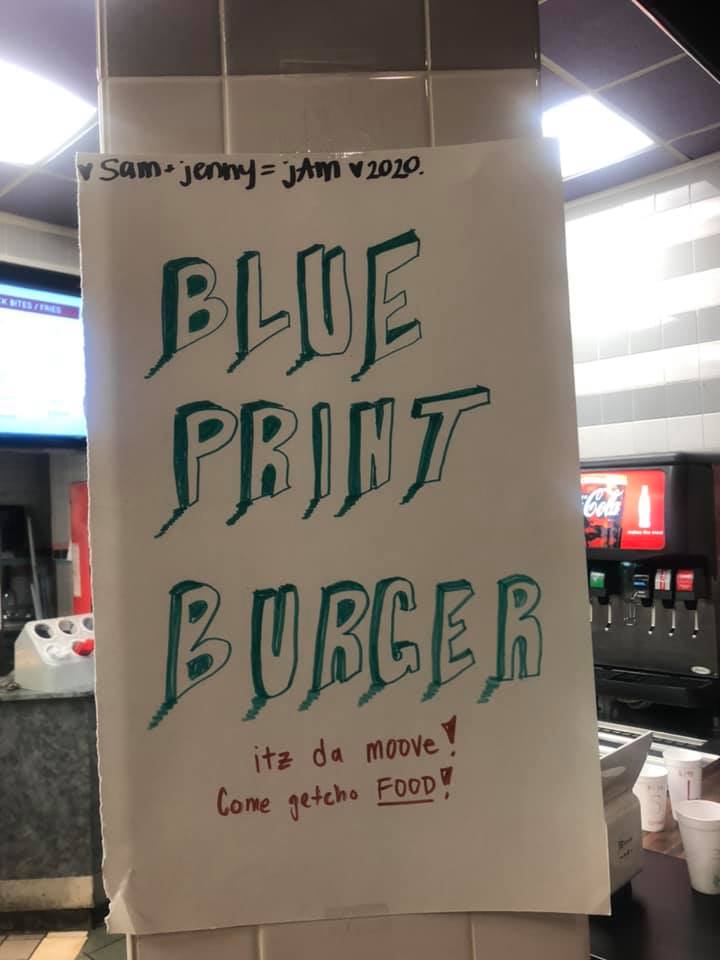 ♥ Sam + jenny = jAm ♥ 2020.
BLUE
PRINT
BURGER
itz da moove!
Come getcho FOOD!
CK BITES / FRIES
Coca-Cola